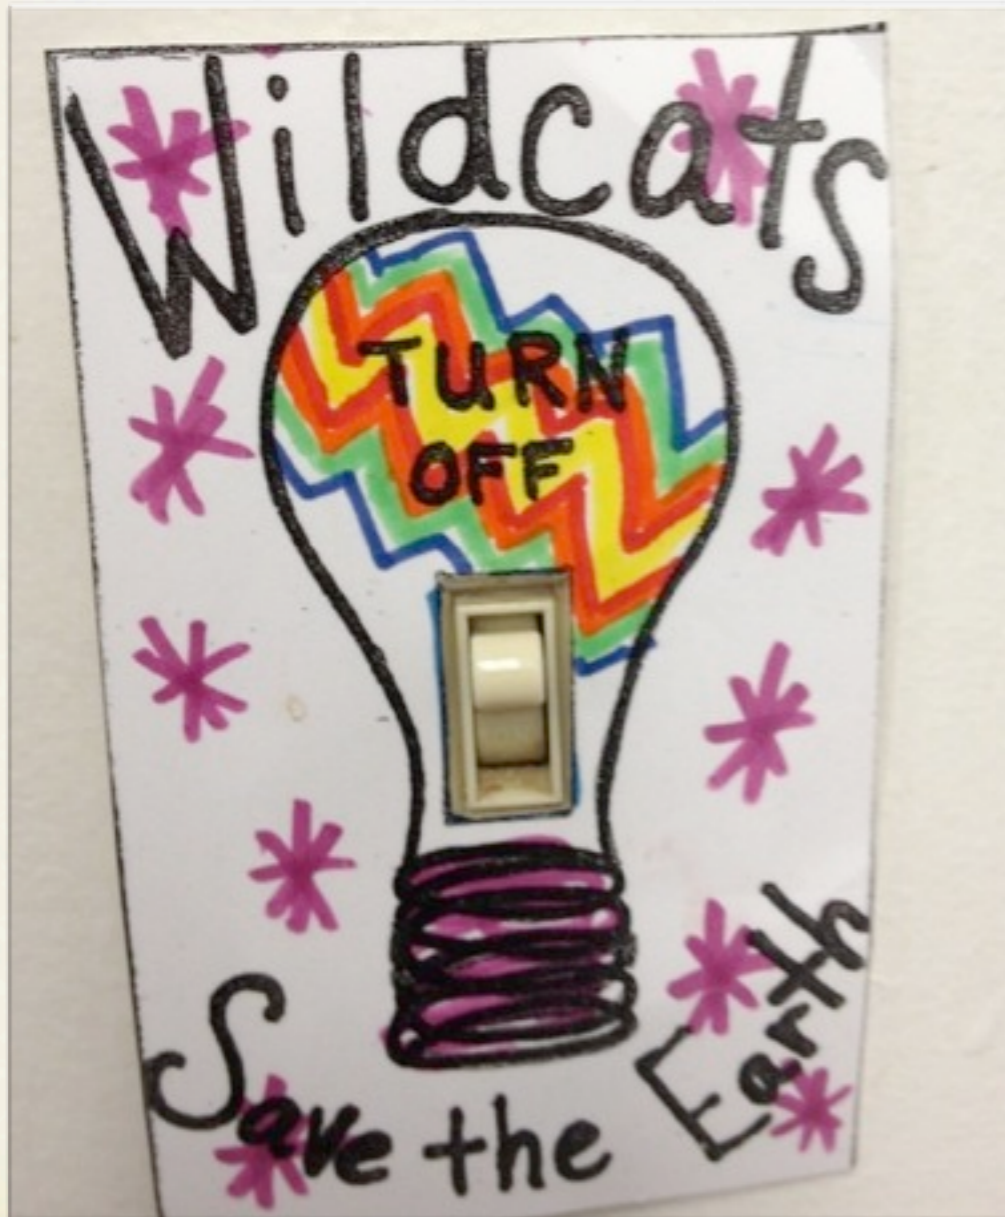 Wildcats
TURN
OFF
Save the Earth